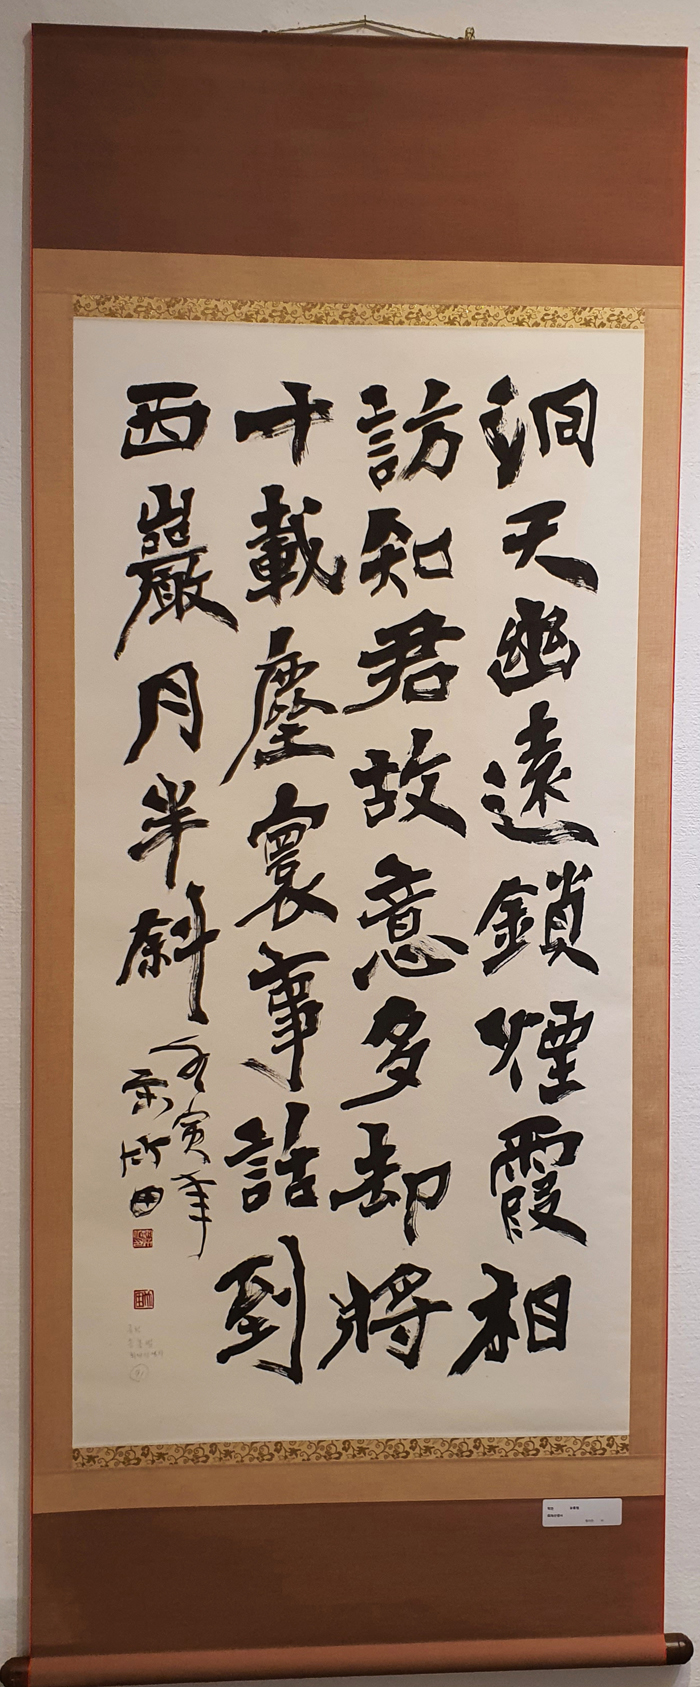 洞天幽遠鎖煙霞相
訪知君故意多却將
十載塵寰事話到
西巖月半斜
寅年
竹田